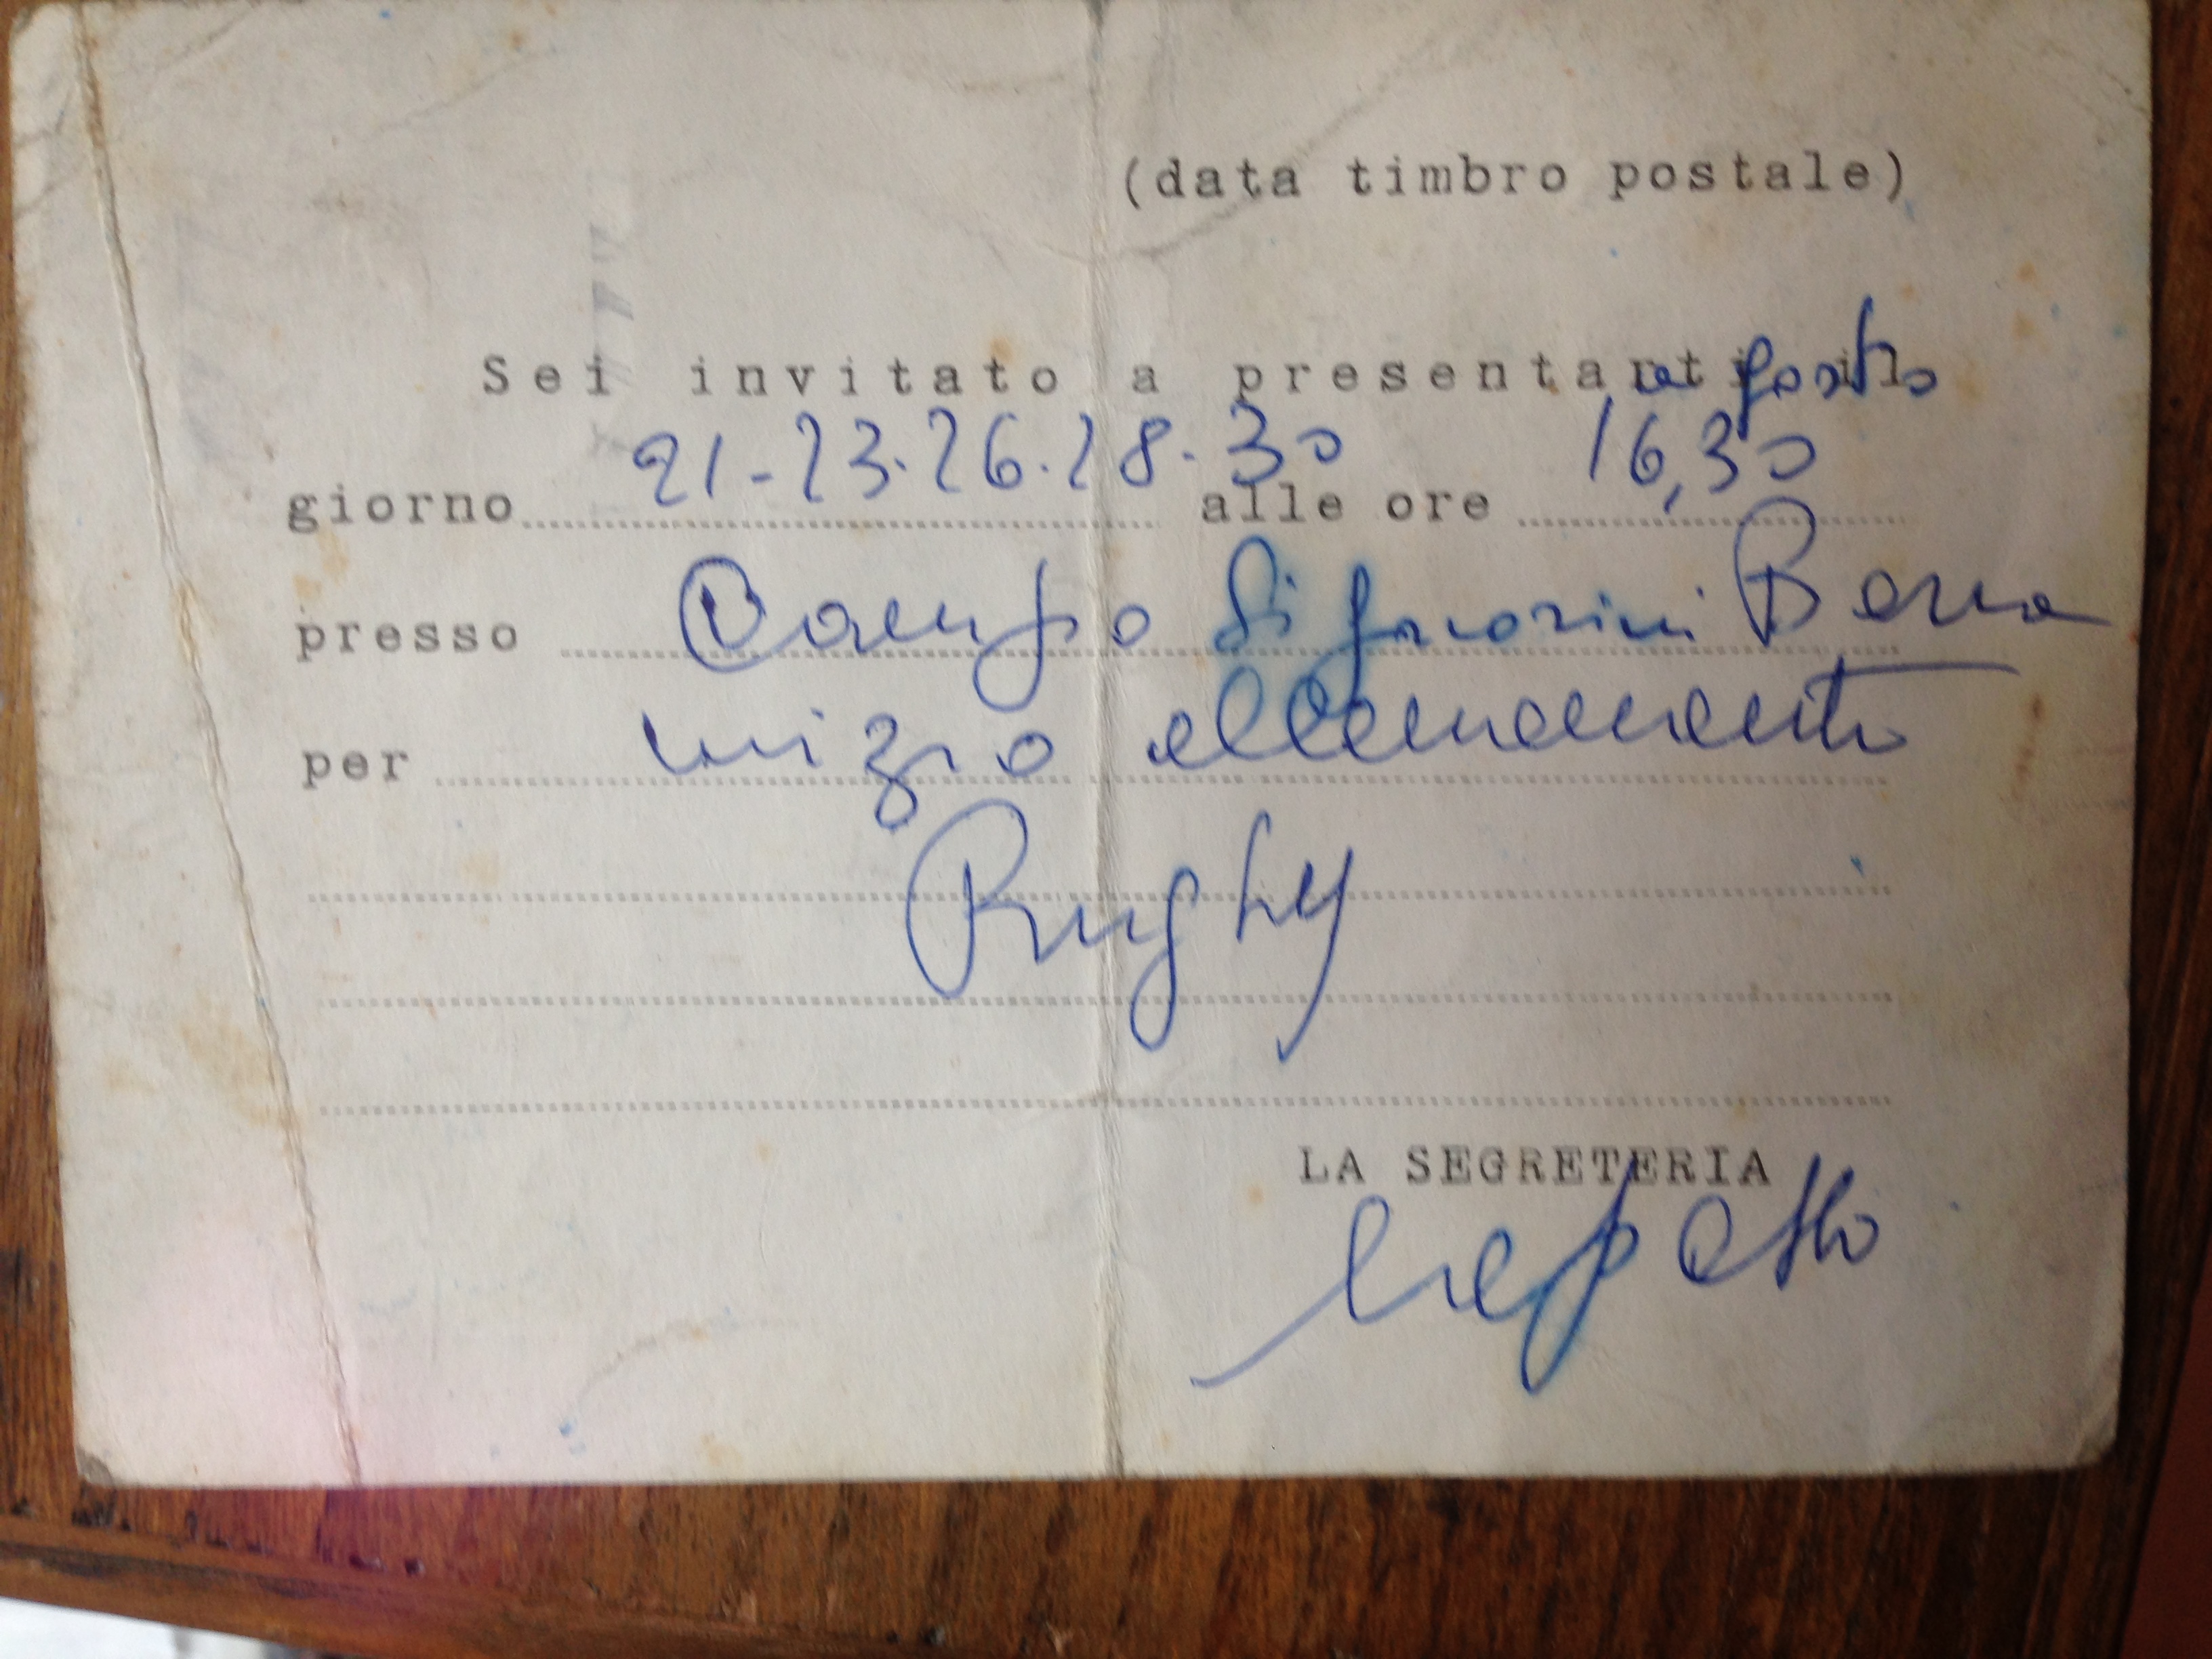 (data timbro postale)
Sei invitato a presentarti il
agosto
giorno 21-23.26.28.30 alle ore 16,30
presso Campo Signorini Borra
per inizio allenamento
Rugby
LA SEGRETERIA